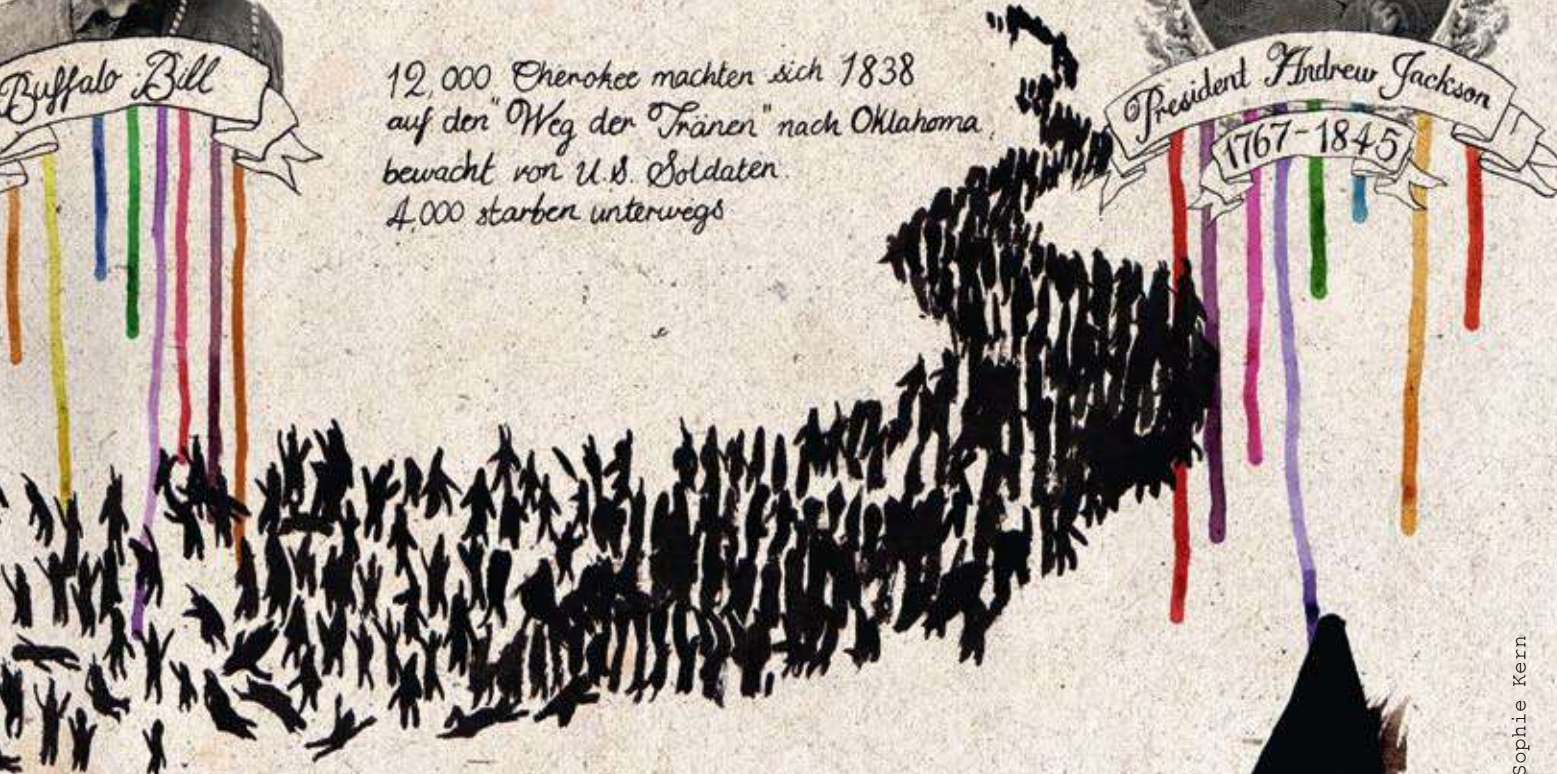 Buffalo Bill
12,000 Cherokee machten sich 1838
auf den "Weg der Tränen" nach Oklahoma,
bewacht von U.S. Soldaten.
4,000 starben unterwegs
President Andrew Jackson
1767-1845
Sophie Kern